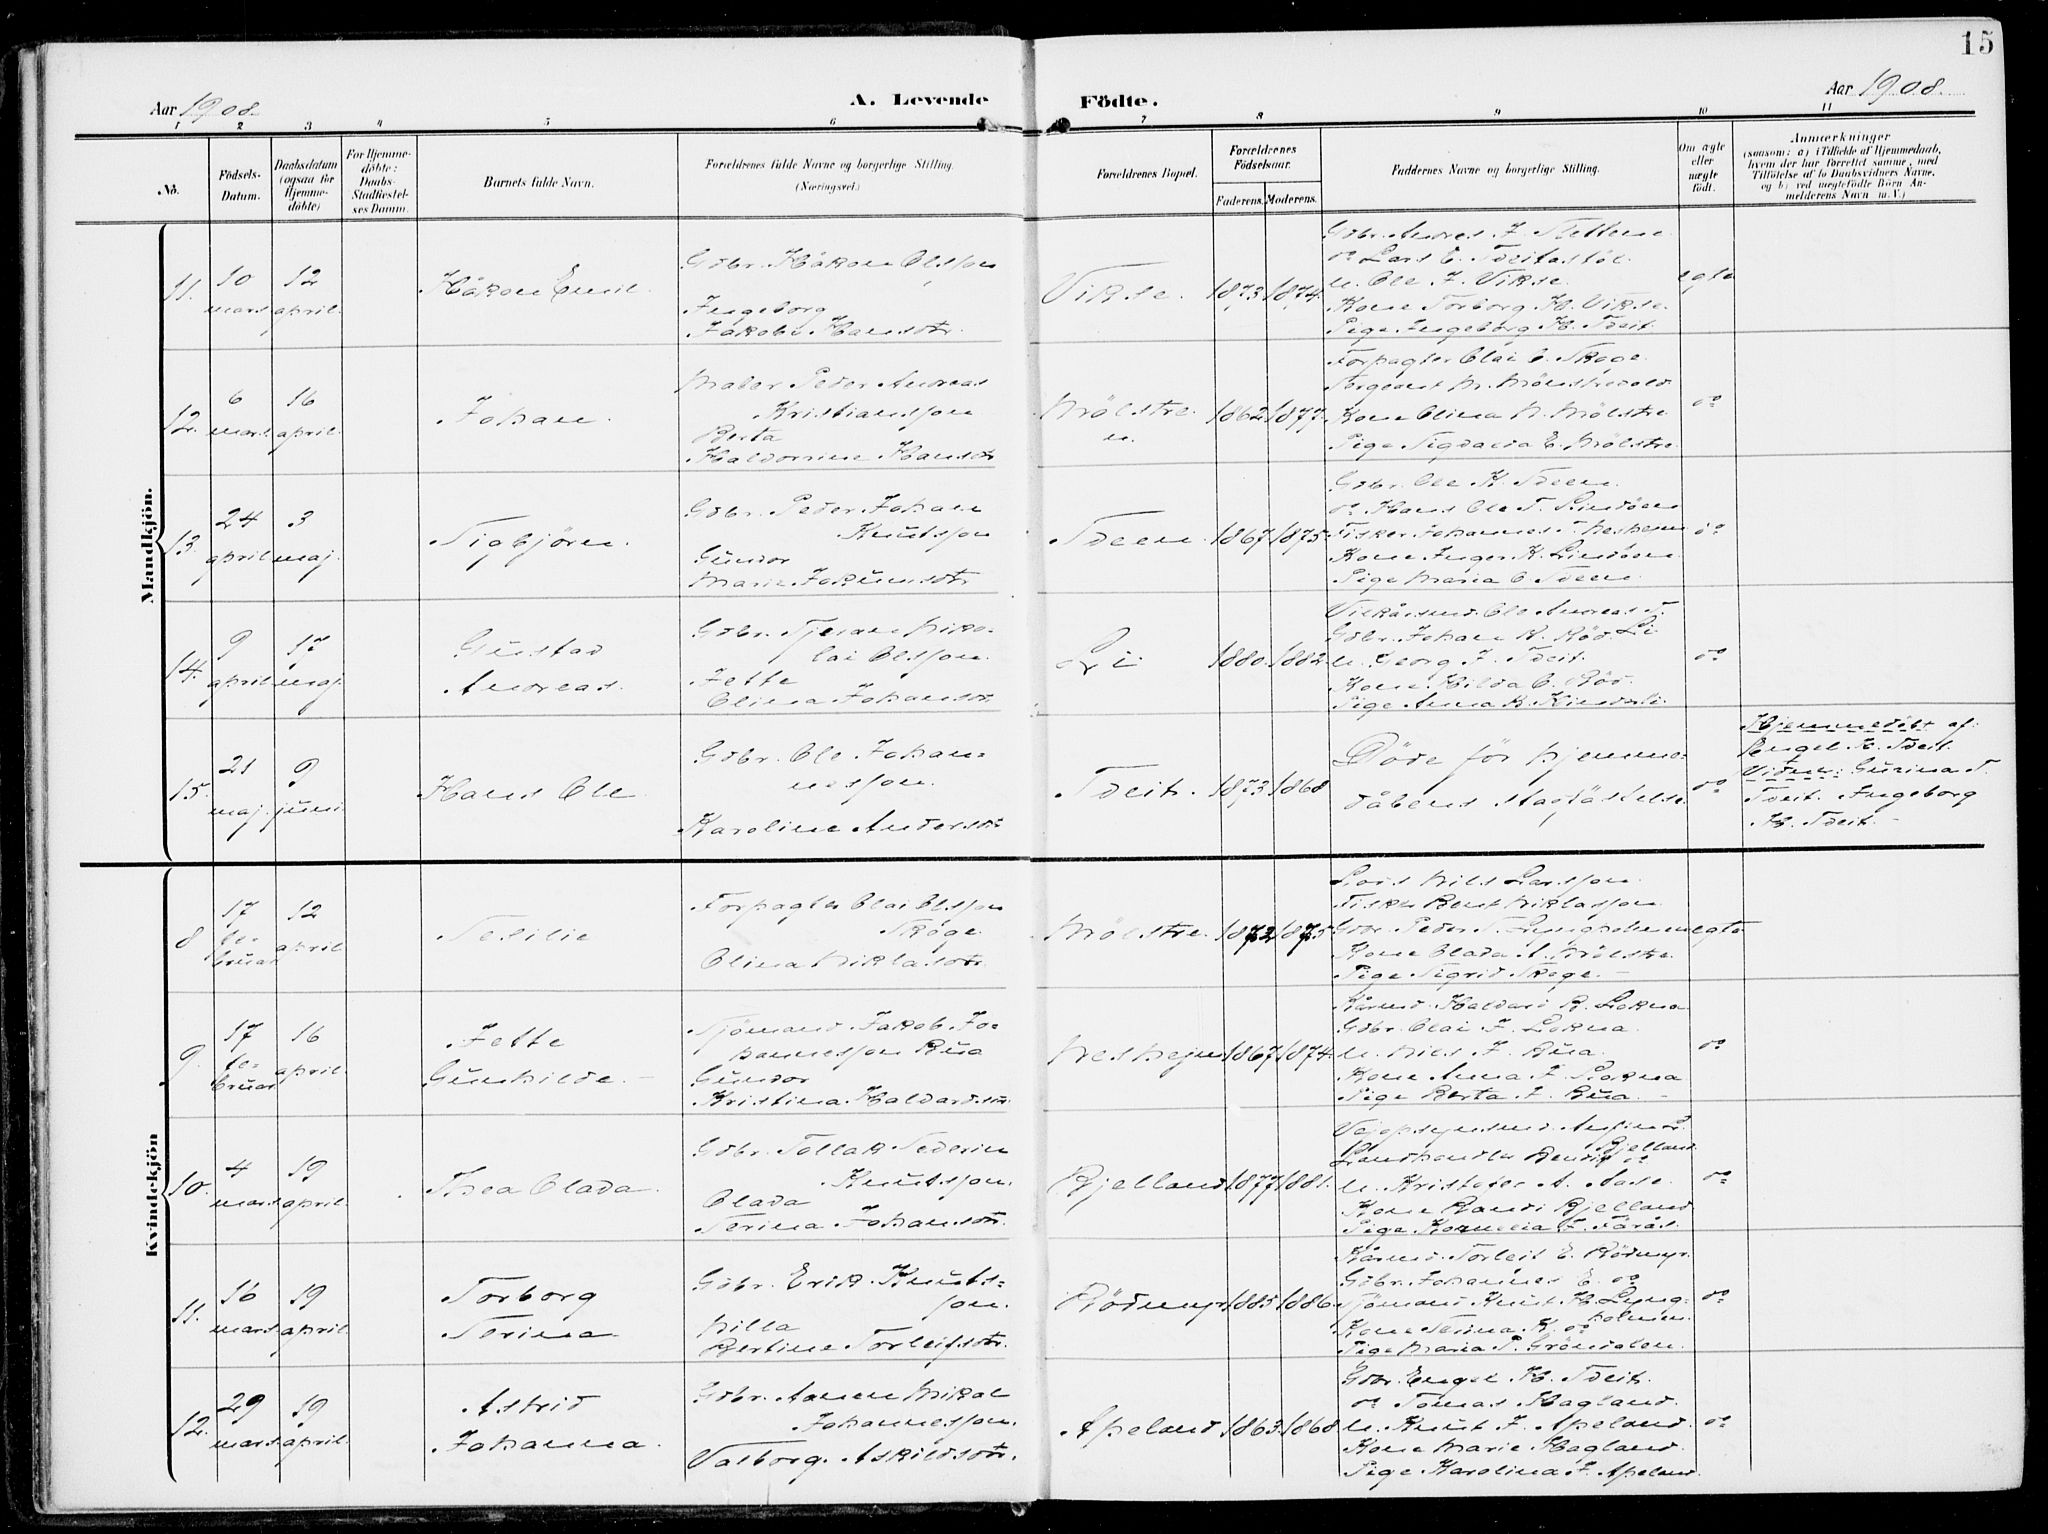 15
Aar 1908.
A. Levende
Födte.
Aar 1908.
1 2 3 4 5 6 7 8 9 10 11
No.
Födsels-
Datum.
Daabsdatum
(ogsaa för
Hjemme-
döbte)
For Hjemme-
döbte:
Daabs-
Stadfæstel-
ses Datum.
Barnets fulde Navn.
Forældrenes fulde Navne og borgerlige Stilling.
(Næringsvei.)
Forældrenes Bopæl.
Forældrenes
Födselsaar.
Faderens. Moderens.
Faddernes Navne og borgerlige Stilling.
Om ægte
eller
uægte
födt.
Anmærkninger
(saasom: a) i Tilfælde af Hjemmedaab,
hvem der har forrettet samme, med
Tilföielse af to Daabsvidners Navne,
og b) ved uægtefödte Börn An-
melderens Navn m. V.)
Mandkjön.
11.
10
mars
12
april.
Håkon Emil.
Gdbr. Håkon Olsson
Ingeborg
Jakobe Hansdtr.
Vikse.
1873.
1874.
Gdbr. Andres J.
do Lars E.
u. Ole J. Vikse.
Kone Torborg H. Vikse.
Pige Ingeborg H. Tveit.
egte
12.
6
mars.
16
april.
Johan.
Maler Peder Andreas
Kristiansson
Berta
Haldorine Hansdtr
Mölstre.
1862
1877.
Forpagter Olai O. Skoge.
Sergeant M.
Kone Olina N. Mölstre
Pige E. Mölstre.
do
13.
24
april
3
maj.
Sigbjörn.
Gdbr. Peder Johan
Knutsson
Gundor
Marie
Sveen.
1867
1875.
Gdbr. Ole K. Sveen.
do Hans Ole T.
Fisker Johannes
Kone Inger K.
Pige Maria O. Sveen.
do
14.
9
april
17
maj.
Gustav
Andreas.
Gdbr. Niko-
lai Olsson.
Jette
Olina Johansdtr.
Li
1880.
1882.
Ole Andreas T.
Gdbr. Johan K. Röd. Li
u. Georg J. Tveit.
Kone. Hilda O. Röd.
Pige Anna K.
do
15.
21
maj.
9
juni
Hans Ole
Gdbr. Ole Johan-
nesson.
Karoline Andersdtr
Tveit.
1873
1868
Döde för hjemme-
dåbens stadfästelse.
do
Hjemmedöbt af:
Engel H. Tveit.
Vidner: Gurina T.
Tveit. Ingeborg
H. Tveit.
Kvindekjön
8
17
fe-
bruar
12
april
Sesilie
Forpagter Olai Olsson
Skoge.
Olina Niklasdtr.
Mölstre.
1872
1875.
Nils Larsson.
Fisker Bent Niklasson.
Gdbr. Peder T. Lyngholmen
Kone Olava A. Mölstre.
Pige Sigrid Skoge.
egte
9.
17
fe-
bruar
16
april.
Jette
Gunhilde.
Sjömand. Jakob Jo-
hannesson Bua
Gundor
Kristina Haldordsdtr.
1867
1874.
Kårmd. Haldord B. Lokna
Gdbr. Olai J. Lokna.
u. Nils J. Bua.
Kone Anna J. Lokna
Pige Berta J. Bua.
do
10.
4
mars
19
april.
Thea Olava.
Gdbr. Tollak Severin
Knutsson.
Olava
Serina Johansdtr.
Bjelland
1877.
1881.
Bjelland.
Landhandler
u. Kristofer A. Aase.
Kone Randi Bjelland
Pige Kornelia J.
do
11.
16
mars
19
april.
Torborg
Serina
Gdbr. Erik Knuts-
son.
Milla
Bertine Torleifsdtr.
Rödmyr
1885.
1886.
Kårmd. Torleif E. Rödmyr.
Gdbr. Johannes E. do
Sjömand Knut H. Lyng-
holmen.
Kone Serina K. do
Pige Maria P. Gröndalen.
do
12.
29
mars
19
april.
Astrid
Johanna.
Gdbr. Aamen Mikal
Johannesson.
Valborg. Askildsdtr.
Apeland
1863.
1868
Gdbr. Engel H. Tveit.
do Tomas Hagland.
u. Knut J. Apeland.
Kone Marie Hagland.
Pige Karolina J. Apeland.
do